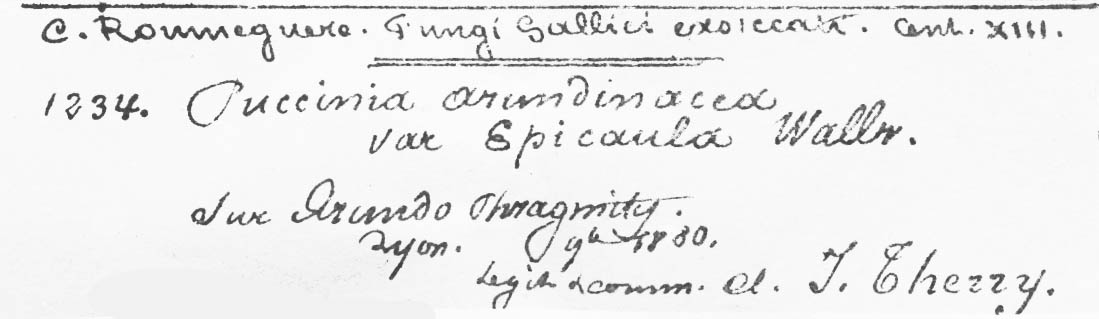 C. Roumeguere. Fungi Gallici exsiccati. Cent. XIII.
1234. Puccinia arundinacea
var Epicaula Wallr.
Sur Arundo Phragmity.
Lyon. 9bre 1880.
Legit & comm. cl. J. Therry.